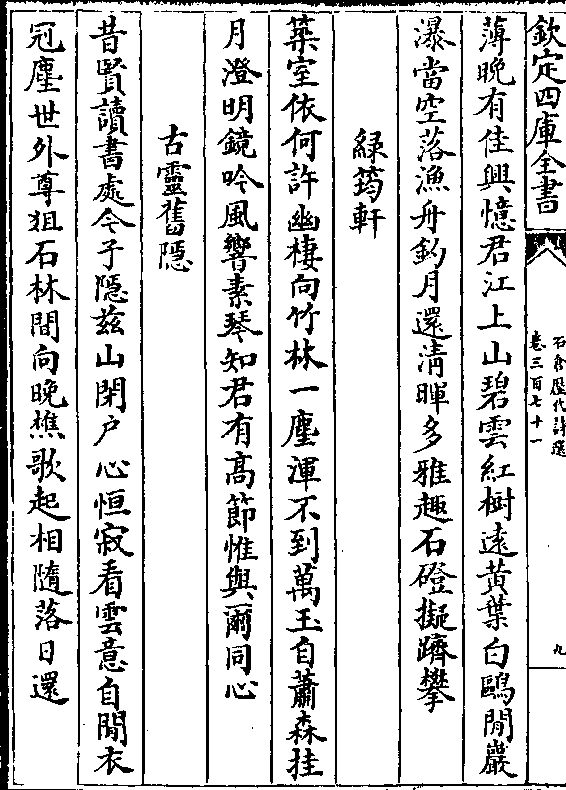 欽定四庫全書
石倉歷代詩選
卷三百七十一
九
薄晚有佳興憶君江上山碧雲紅樹遠黄葉白鷗閒巖
瀑當空落漁舟釣月還清暉多雅趣石磴擬躋攀
緑筠軒
築室依何許幽棲向竹林一塵渾不到萬玉自蕭森挂
月澄明鏡吟風響素琴知君有高節惟與爾同心
古靈舊隠
昔賢讀書處今子隠兹山閉户心恒寂看雲意自閒衣
冠塵世外尊狙石林間向晚樵歌起相隨落日還